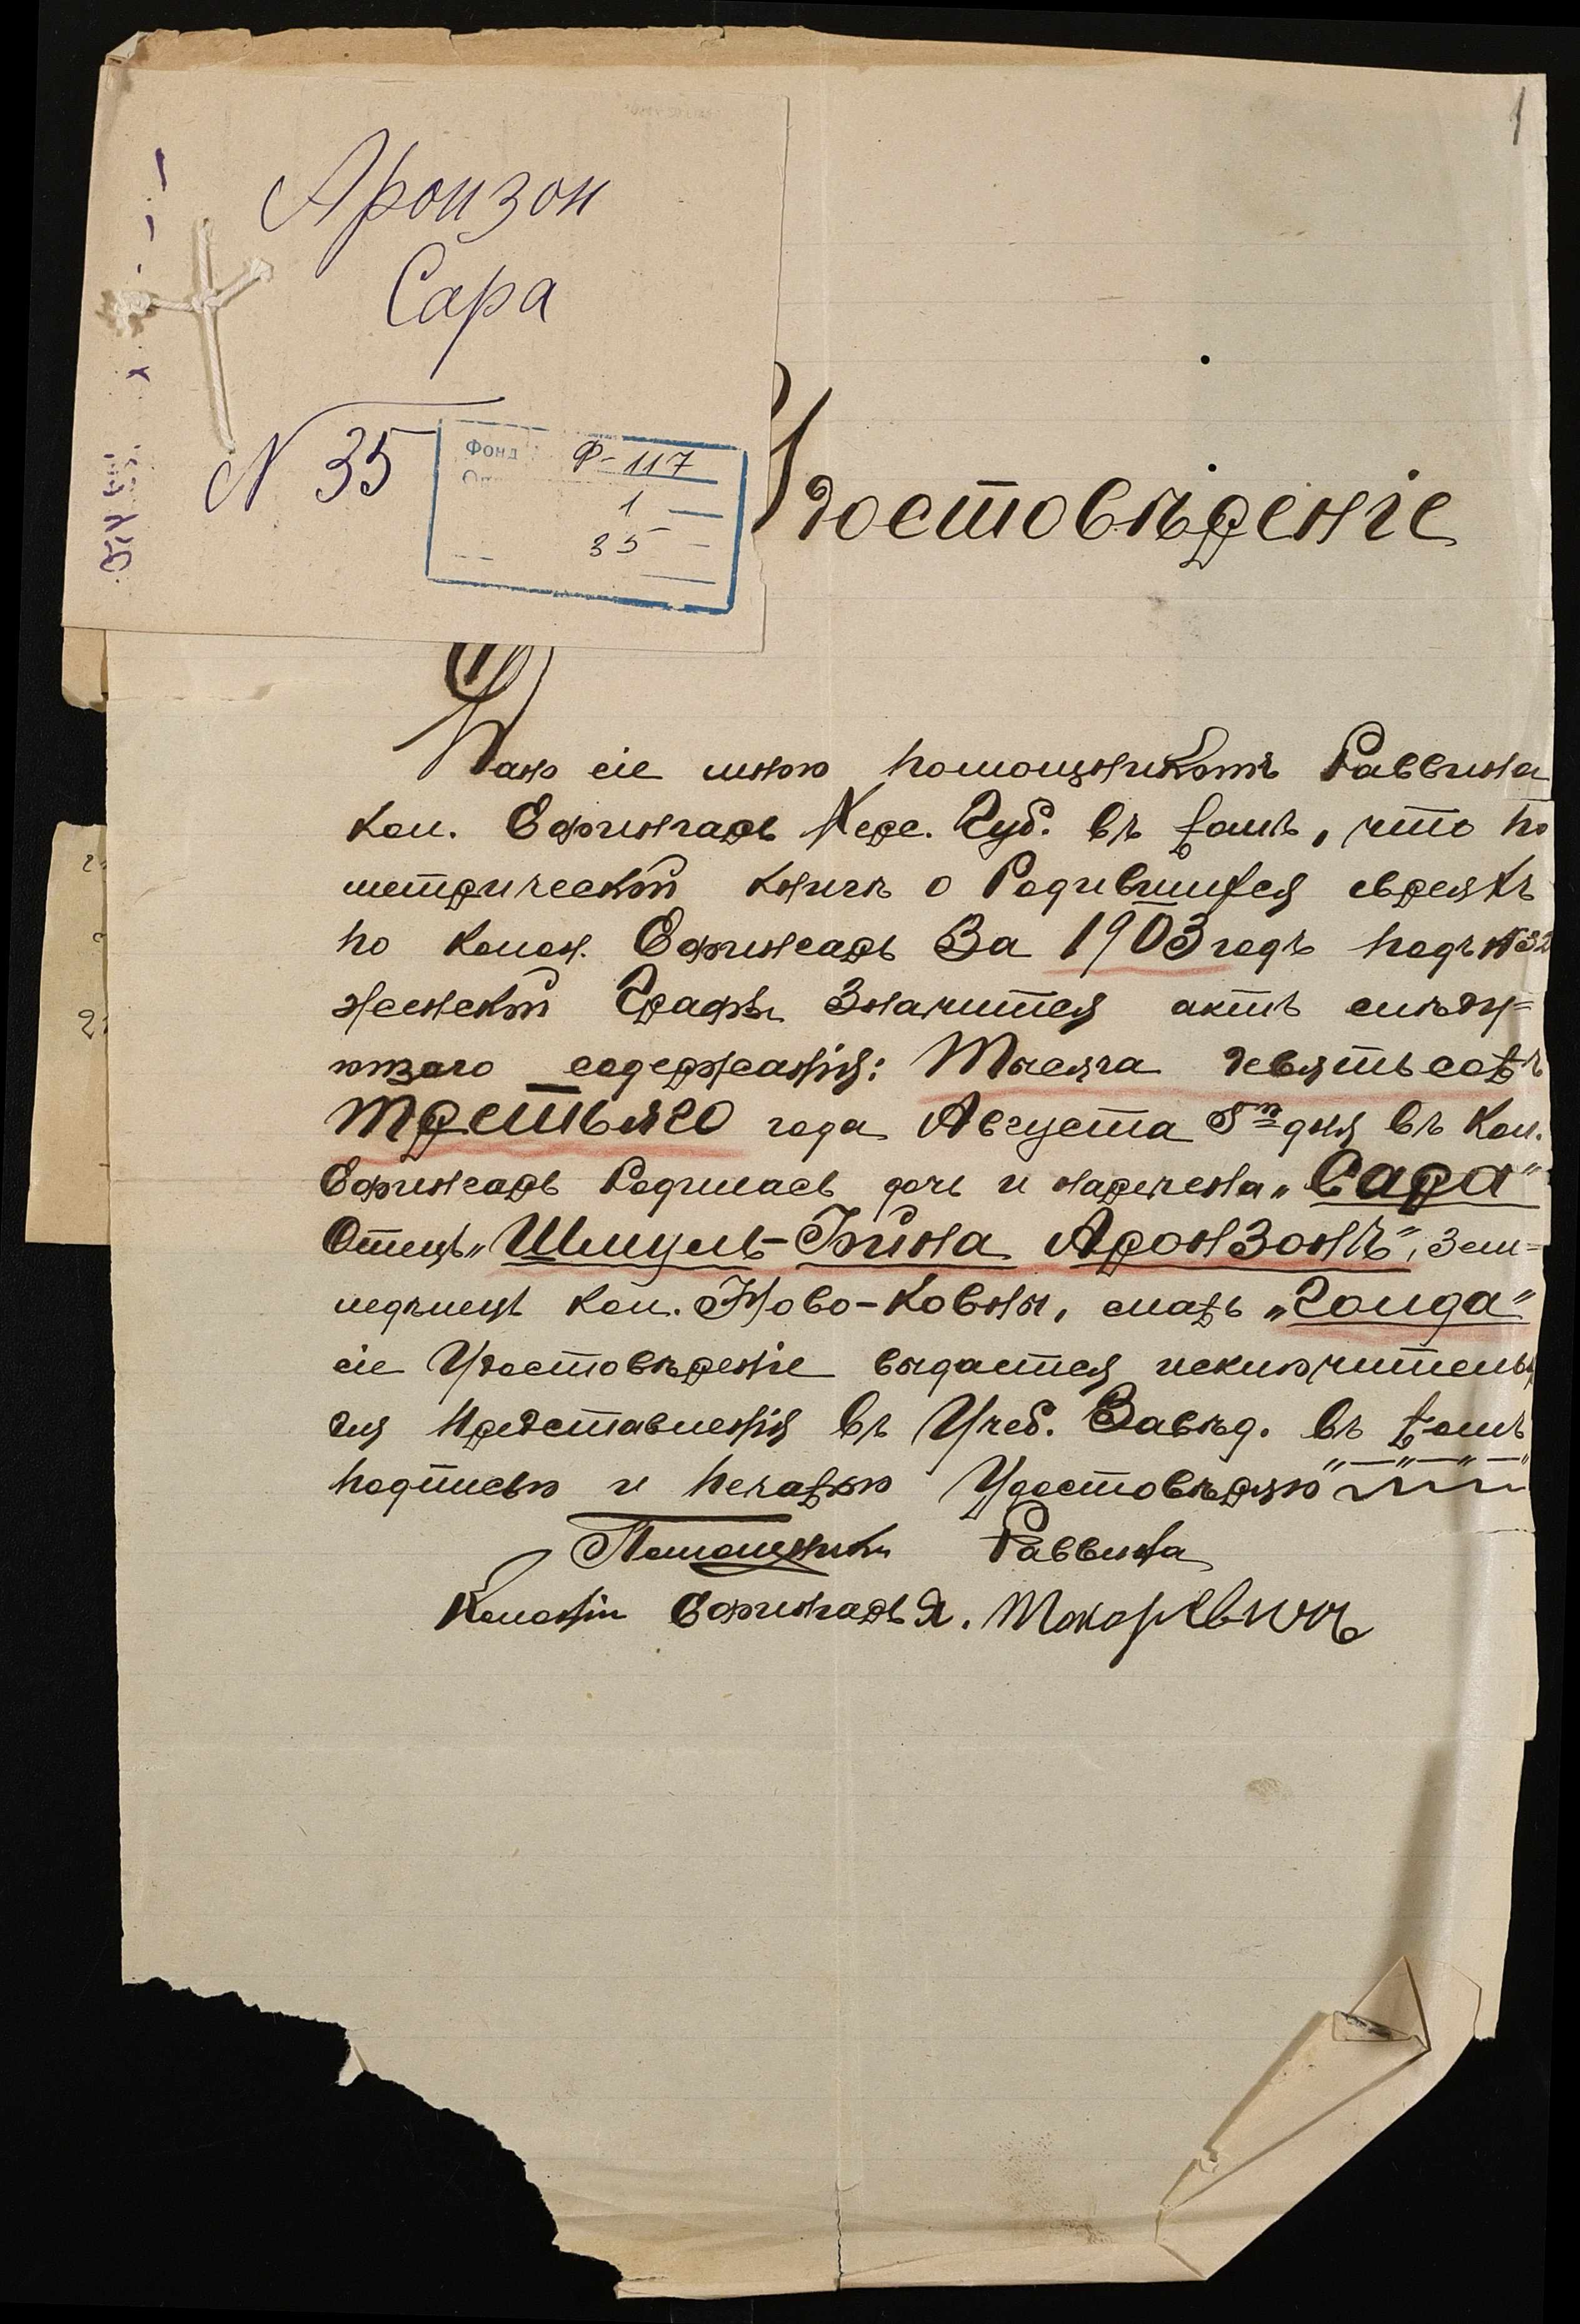 Аронзон
Сара
N 35
Фонд Ф-117
1
35
1
Удостовѣреніе
Дано сіе мною помощникомъ Раввина
кол. Ефингаръ Херс. Губ. въ томъ, что по
метрической книгѣ о Родившихся евреяхъ
по колон. Ефингаръ За 1903 годъ подъ №32
женской Графы Значится актъ слѣду=
ющаго содержанія: Тысяча девятьсотъ
третьяго года Августа 5го дня въ Кол.
Ефингаръ Родилась дочь и наречена „Сара"
Отецъ „Шмуль- Аронзонъ", Зем=
ледѣлецъ кол. Ново-Ковны, мать „Голда"
сіе Удостовѣреніе выдается исключительн
для представленія въ Учеб. Завѣд. въ томъ
подписью и печатью Удостовѣряю
Помощникъ Раввина
Колоніи Ефингаръ Я. Токаревичъ